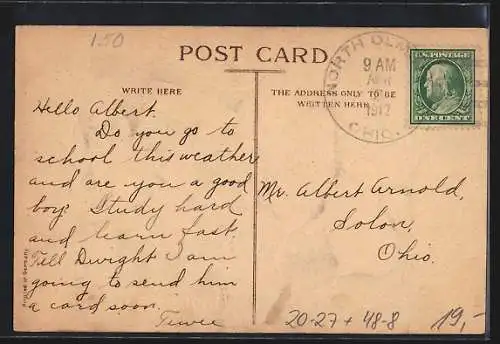 150
POST CARD
NORTH OLM
9 AM
1912
OHIO.
U.S. POSTAGE
ONE CENT
WRITE HERE
THE ADDRESS ONLY TO BE
WRITTEN HERE
Hello Albert.
Do you go to
school this weather
and are you a good
boy? Study hard
and learn fast.
Tell Dwight I am
going to send him
a card soon.
Mr. Albert Arnold,
Solon,
Ohio.
Printed in Germany
20-27 + 48-8
19,-